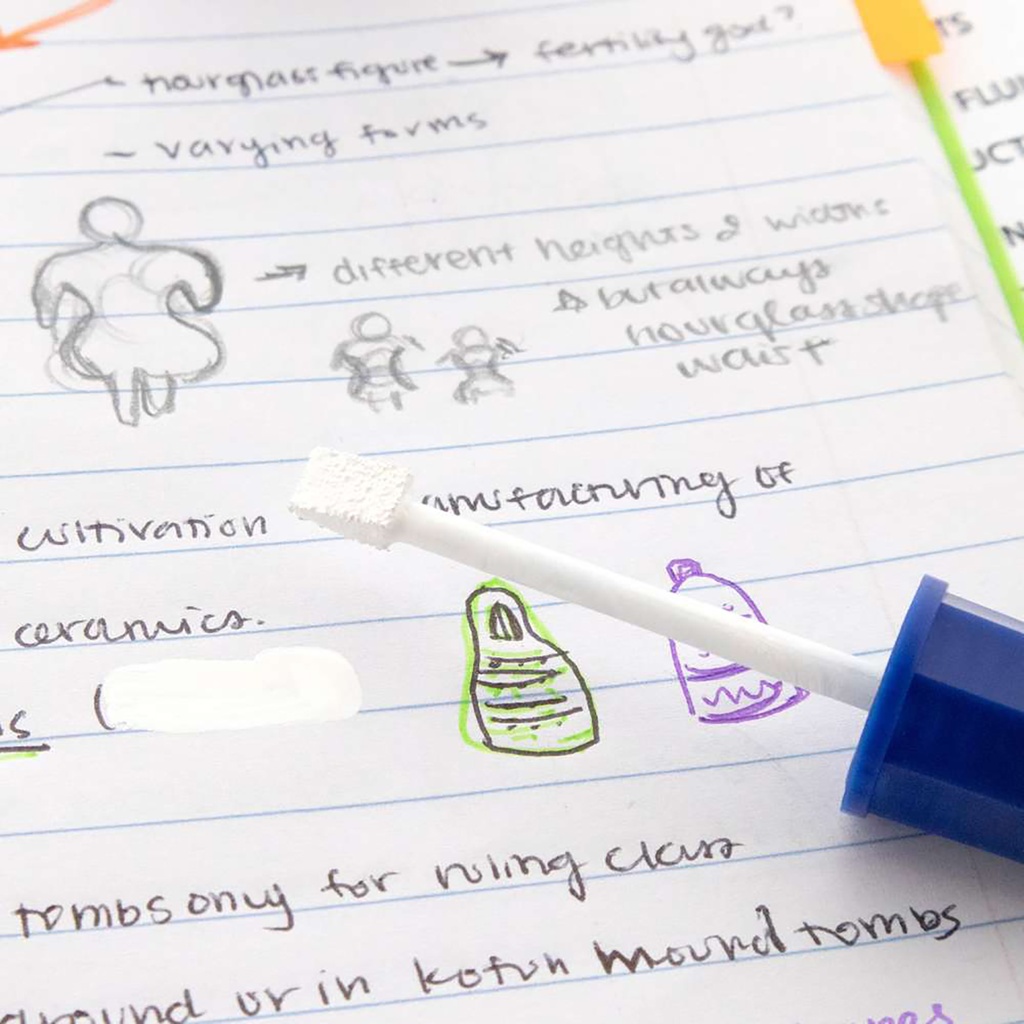 - hourglass figure → fertility god?
- varying forms
→ different heights & widths
☆ but always
hourglass shape
waist
cultivation
ceramics.
(
tombs only for ruling class
ground or in kofun mound tombs
TS
FLUI
UCT
N